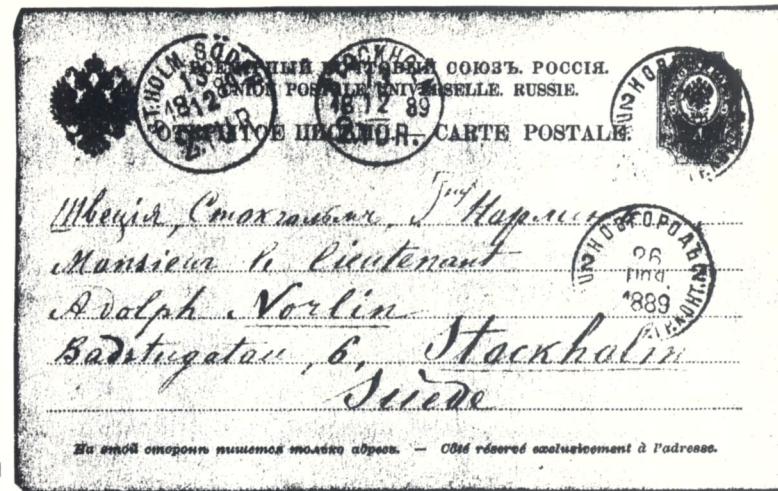 ВСЕМІРНЫЙ ПОЧТОВЫЙ СОЮЗЪ. РОССІЯ.
UNION POSTALE UNIVERSELLE. RUSSIE.
ОТКРЫТОЕ ПИСЬМО. — CARTE POSTALE.
ST.HOLM. SÖDE
18 12 89
2. TUR
STOCKHOLM
18 12 89
TUR.
НОВ
Швеція, Стокгольмъ, Гну Нарлин
Monsieur le lieutenant
Adolph Norlin
Badstugatan, 6, Stockholm
Suède
НОВГОРОДЪ
26
1889
На этой сторонѣ пишется только адресъ. — Côté réservé exclusivement à l'adresse.